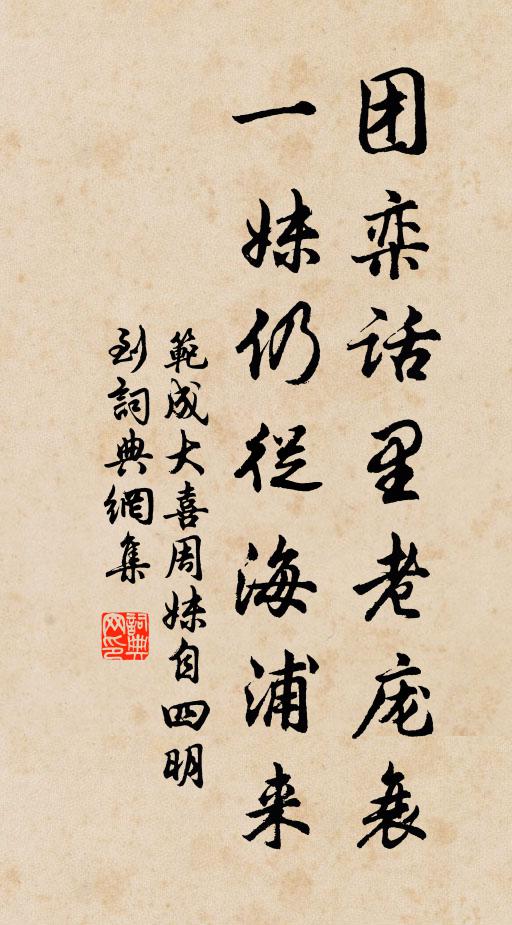 团栾话里老庞衰
一妹仍從海浦来
範成大喜周妹自四明
到詞典網集
詞典网印